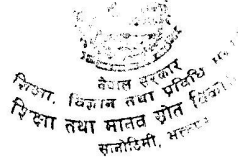 नेपाल सरकार
शिक्षा, विज्ञान तथा प्रविधि
शिक्षा तथा मानव स्रोत विकास
सानोठिमी,